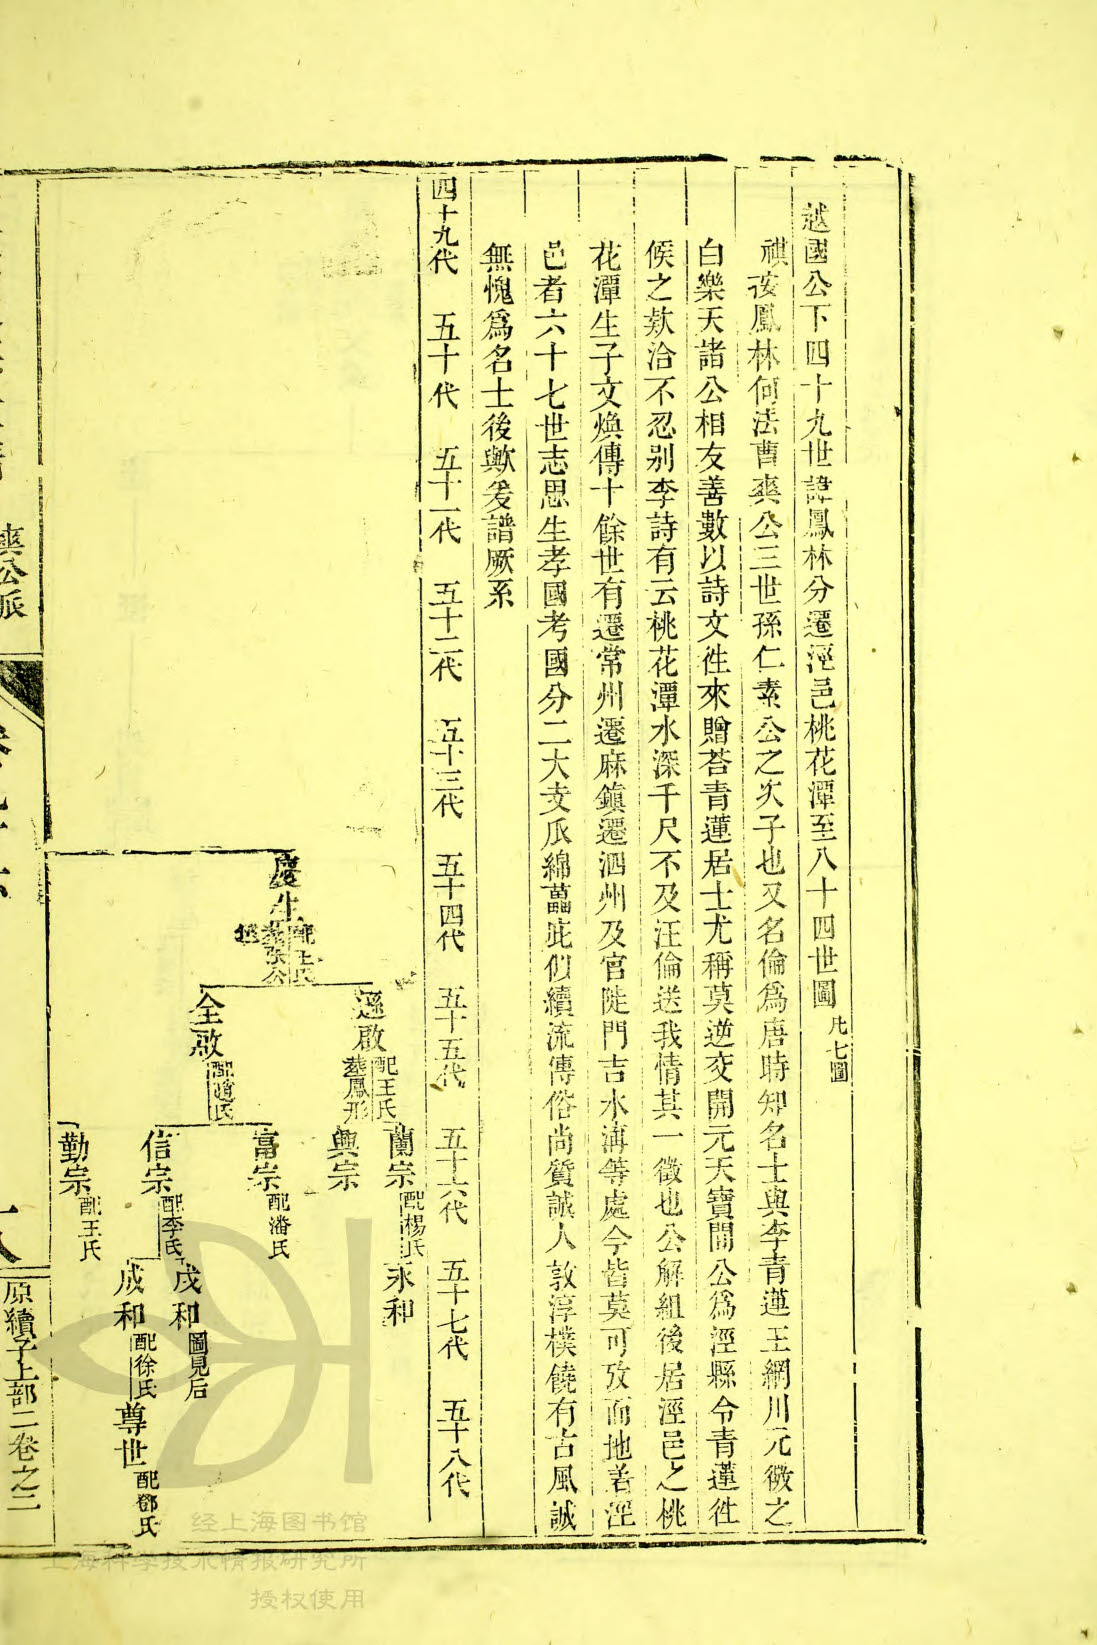 越國公下四十九世諱鳳林分遷涇邑桃花潭至八十四世圖 凡七圖
祺按鳳林何法曹爽公三世孫仁素公之次子也又名倫為唐時知名士與李青蓮王網川元微之
白樂天諸公相友善數以詩文徃來贈荅青蓮居士尤稱莫逆交開元天寶間公為涇縣令青蓮徃
候之欵洽不忍别李詩有云桃花潭水深千尺不及汪倫送我情其一徵也公解組後居涇邑之桃
花潭生子文煥傳十餘世有遷常州遷麻鎮遷泗州及官陡門吉水溝等處今皆莫可攷而地著涇
邑者六十七世志思生孝國考國分二大支瓜綿蕌庇似續流傳俗尚質誠人敦淳樸饒有古風誠
無愧爲名士後歟爰譜厥系
四十九代 五十代 五十一代 五十二代 五十三代 五十四代 五十五代 五十六代 五十七代 五十八代
慶生 配王氏
遜啟 配王氏 葬鳳形
全啟 配趙氏
蘭宗 配楊氏
興宗
富宗 配潘氏
信宗 配李氏
勤宗 配王氏
永和
茂和 圖見后
成和 配徐氏
尊世 配鄧氏
爽公派
原續子上部二卷之二
经上海图书馆
上海科学技术情报研究所
授权使用